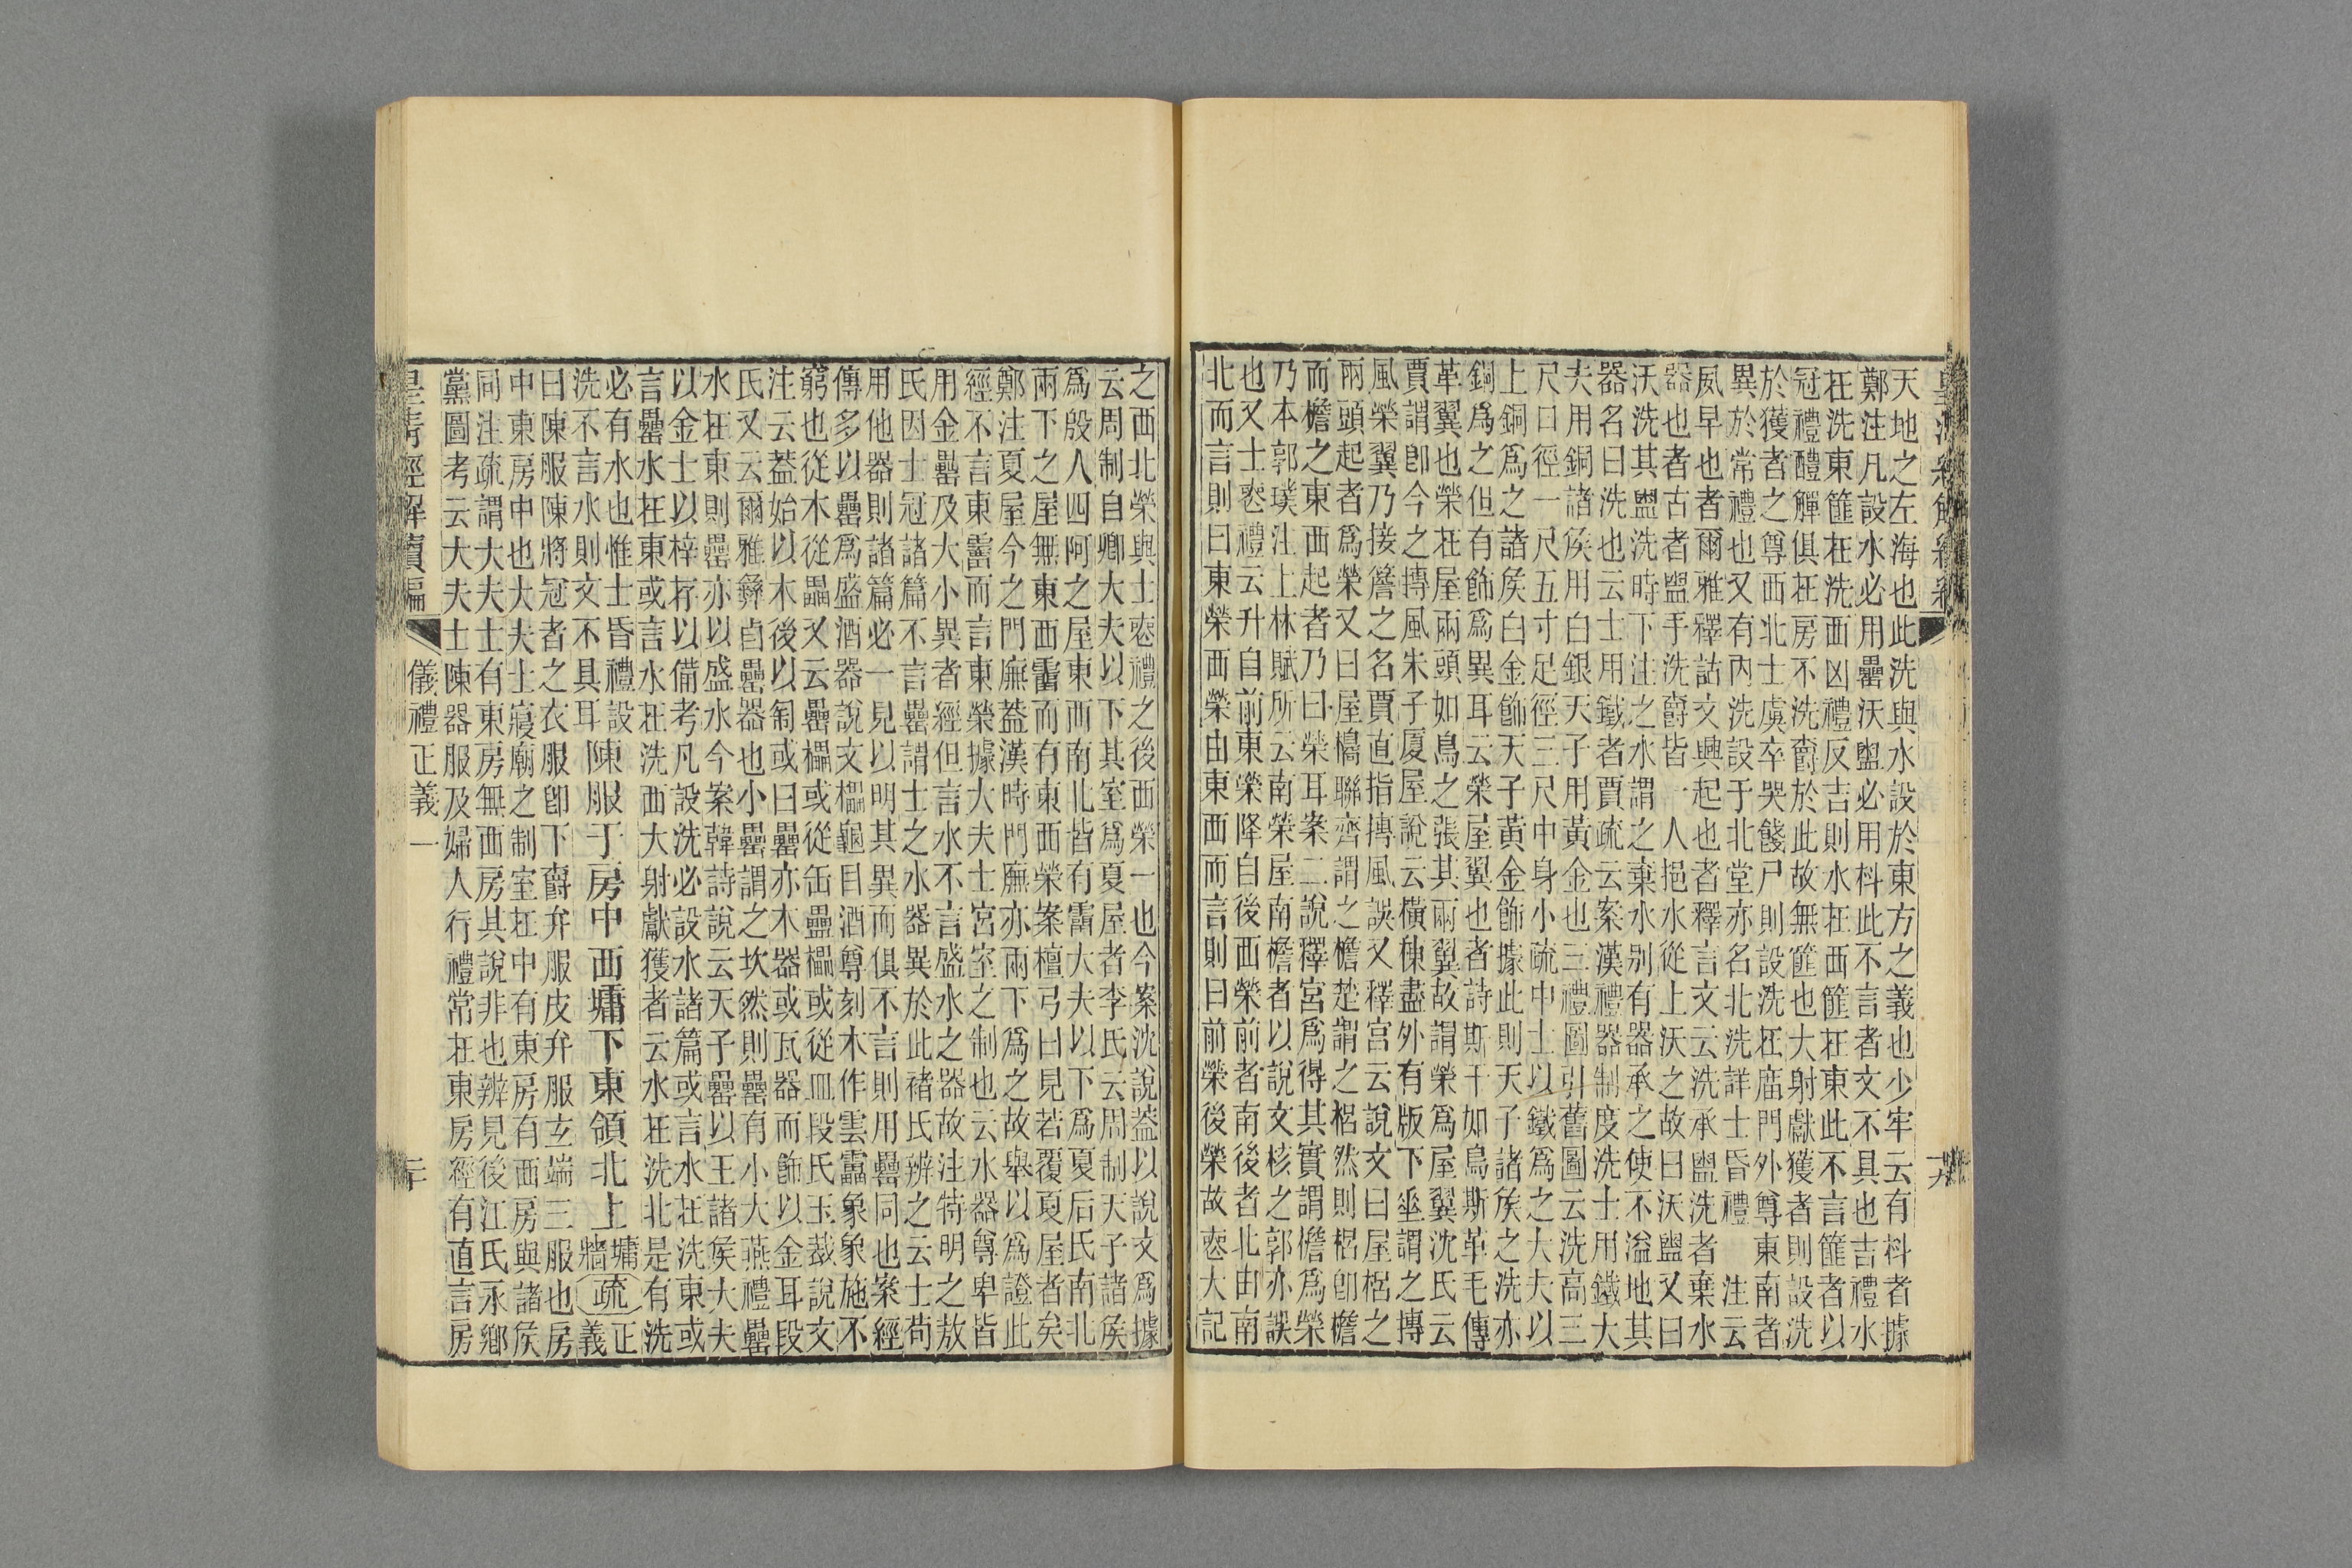 天地之左海也此洗與水設於東方之義也少牢云有枓者據
鄭注凡設水必用罍沃盥必用枓此不言者文不具也吉禮水
在洗東篚在洗西凶禮反吉則水在西篚在東此不言篚者以
冠禮醴觶俱在房不洗爵於此故無篚也大射獻獲者則設洗
於獲者之尊西北士虞卒哭餞尸則設洗在庿門外尊東南者
異於常禮也又有內洗設于北堂亦名北洗詳士昏禮　注云
夙早也者爾雅釋詁文興起也者釋言文云洗承盥洗者棄水
器也者古者盥手洗爵皆一人挹水從上沃之故曰沃盥又曰
沃洗其盥洗時下注之水謂之棄水別有器承之使不溢地其
器名曰洗也云士用鐵者賈疏云案漢禮器制度洗士用鐵大
夫用銅諸侯用白銀天子用黃金也三禮圖引舊圖云洗高三
尺口徑一尺五寸足徑三尺中身小疏中士以鐵為之大夫以
上銅為之諸侯白金飾天子黃金飾據此則天子諸侯之洗亦
銅為之但有飾為異耳云榮屋翼也者詩斯干如鳥斯革毛傳
革翼也榮在屋兩頭如鳥之張其兩翼故謂榮為屋翼沈氏云
賈謂卽今之摶風朱子厦屋說云橫棟盡外有版下垂謂之摶
風榮翼乃接簷之名賈直指摶風誤又釋宮云說文曰屋梠之
兩頭起者為榮又曰屋櫋聯齊謂之檐楚謂之梠然則梠卽檐
而檐之東西起者乃曰榮耳案二說釋宮為得其實謂檐為榮
乃本郭璞注上林賦所云南榮屋南檐者以說文核之郭亦誤
也又士喪禮云升自前東榮降自後西榮前者南後者北由南
北而言則曰東榮西榮由東西而言則曰前榮後榮故喪大記
皇清經解續編卷
十九
之西北榮與士喪禮之後西榮一也今案沈說蓋以說文為據
云周制自卿大夫以下其室為夏屋者李氏云周制天子諸侯
為殷人四阿之屋東西南北皆有霤大夫以下為夏后氏南北
兩下之屋無東西霤而有東西榮案檀弓曰見若覆夏屋者矣
鄭注夏屋今之門廡蓋漢時門廡亦兩下為之故舉以為證此
經不言東霤而言東榮據大夫士宮室之制也云水器尊卑皆
用金罍及大小異者經但言水不言盛水之器故注特明之敖
氏因士冠諸篇不言罍謂士之水器異於此褚氏辨之云士苟
用他器則諸篇必一見以明其異而俱不言則用罍同也案經
傳多以罍為盛酒器說文櫑龜目酒尊刻木作雲靁象象施不
窮也從木從畾又云罍櫑或從缶䍣櫑或從皿段氏玉裁說文
注云蓋始以木後以匋或曰罍亦木器或瓦器而飾以金耳段
氏又云爾雅彝卣罍器也小罍謂之坎然則罍有小大燕禮罍
水在東則罍亦以盛水今案韓詩說云天子罍以玉諸侯大夫
以金士以梓存以備考凡設洗必設水諸篇或言水在洗東或
言罍水在東或言水在洗西大射獻獲者云水在洗北是有洗
必有水也惟士昏禮設
洗不言水則文不具耳
陳服于房中西墉下東領北上墉牆疏正義
曰陳服陳將冠者之衣服卽下爵弁服皮弁服玄端三服也房
中東房中也大夫士寢廟之制室在中有東房有西房與諸侯
同注疏謂大夫士有東房無西房其說非也辨見後江氏永鄉
黨圖考云大夫士陳器服及婦人行禮常在東房經有直言房
皇清經解續編
儀禮正義一
二十